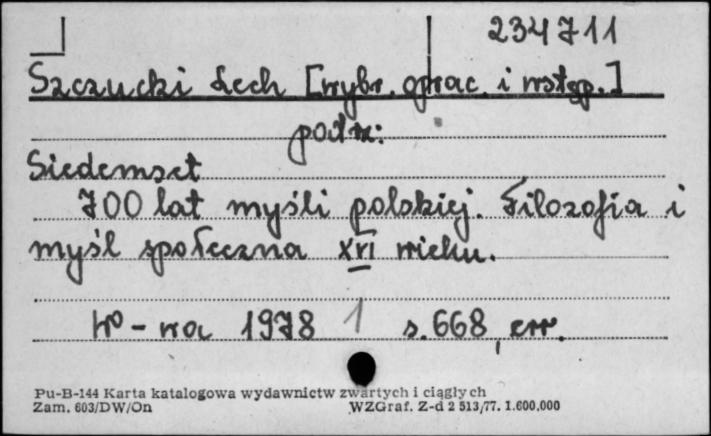 234711
Szczucki Lech [wybr. oprac. i wstęp.]
patrz:
Siedemset
700 lat myśli polskiej. Filozofia i
myśl społeczna XVI wieku.
W-wa 1978 1 s. 668, err.
Pu-B-144 Karta katalogowa wydawnictw zwartych i ciągłych
Zam. 603/DW/On WZGraf. Z-d 2 513/77. 1.600.000